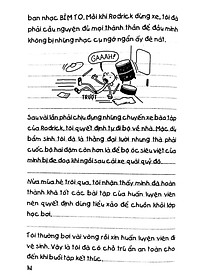 ban nhạc BỈM TO. Mỗi khi Rodrick dừng xe, tôi đã
phải cầu nguyện đủ mọi thánh thần để đầu mình
không bị nhúng nhạc cụ ngổ ngấn ấy đè nát.
GAAAH!
TRƯỢT
Sau vài lần phải chịu đựng những chuyến xe bão táp
của Rodrick, tôi quyết định tự đi bộ về nhà. Mặc dù
bẩm sinh tôi đã là thằng đại lười nhưng thà phải
cuốc bộ hai dặm còn hơn là để bộ óc siêu việt của
mình bị đe doạ khi ngồi sau cái xe quái quỷ đó.
Nửa mùa hè trôi qua, tôi nhận thấy mình đã hoàn
thành khá tốt các bài tập của huấn luyện viên
nên quyết định dùng tiểu xảo để chuồn khỏi lớp
học bơi.
Tôi thường bơi vài vòng rồi xin huấn luyện viên đi
vệ sinh. Vậy là tôi đã có chỗ trú ẩn an toàn cho
đến khi buổi tập kết thúc.